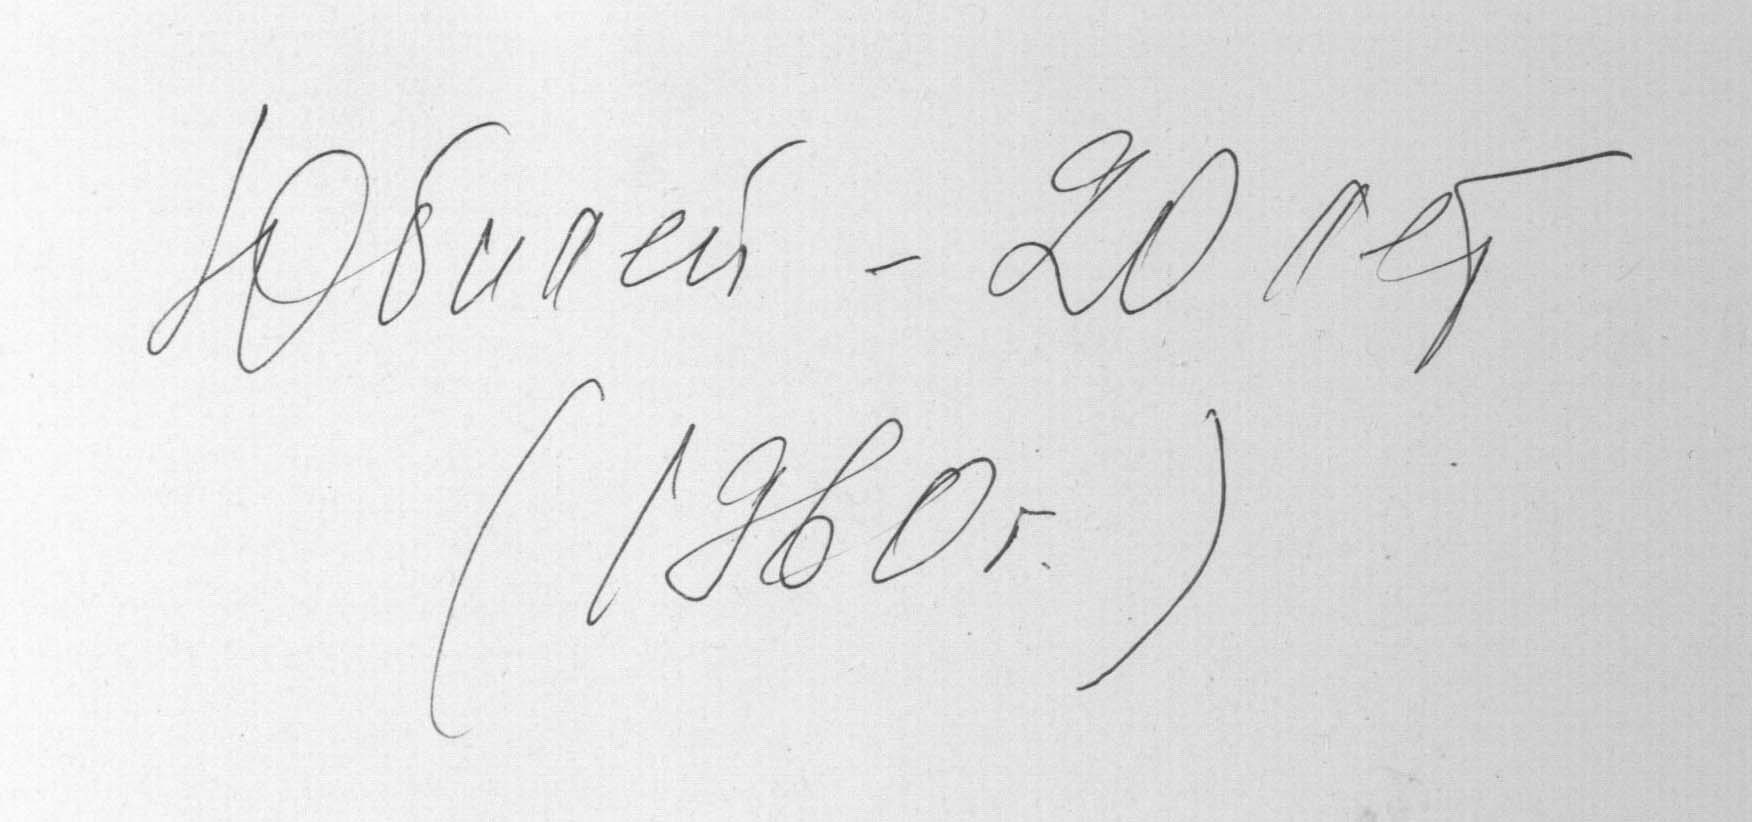 Юбилей - 20 лет
(1960 г.)